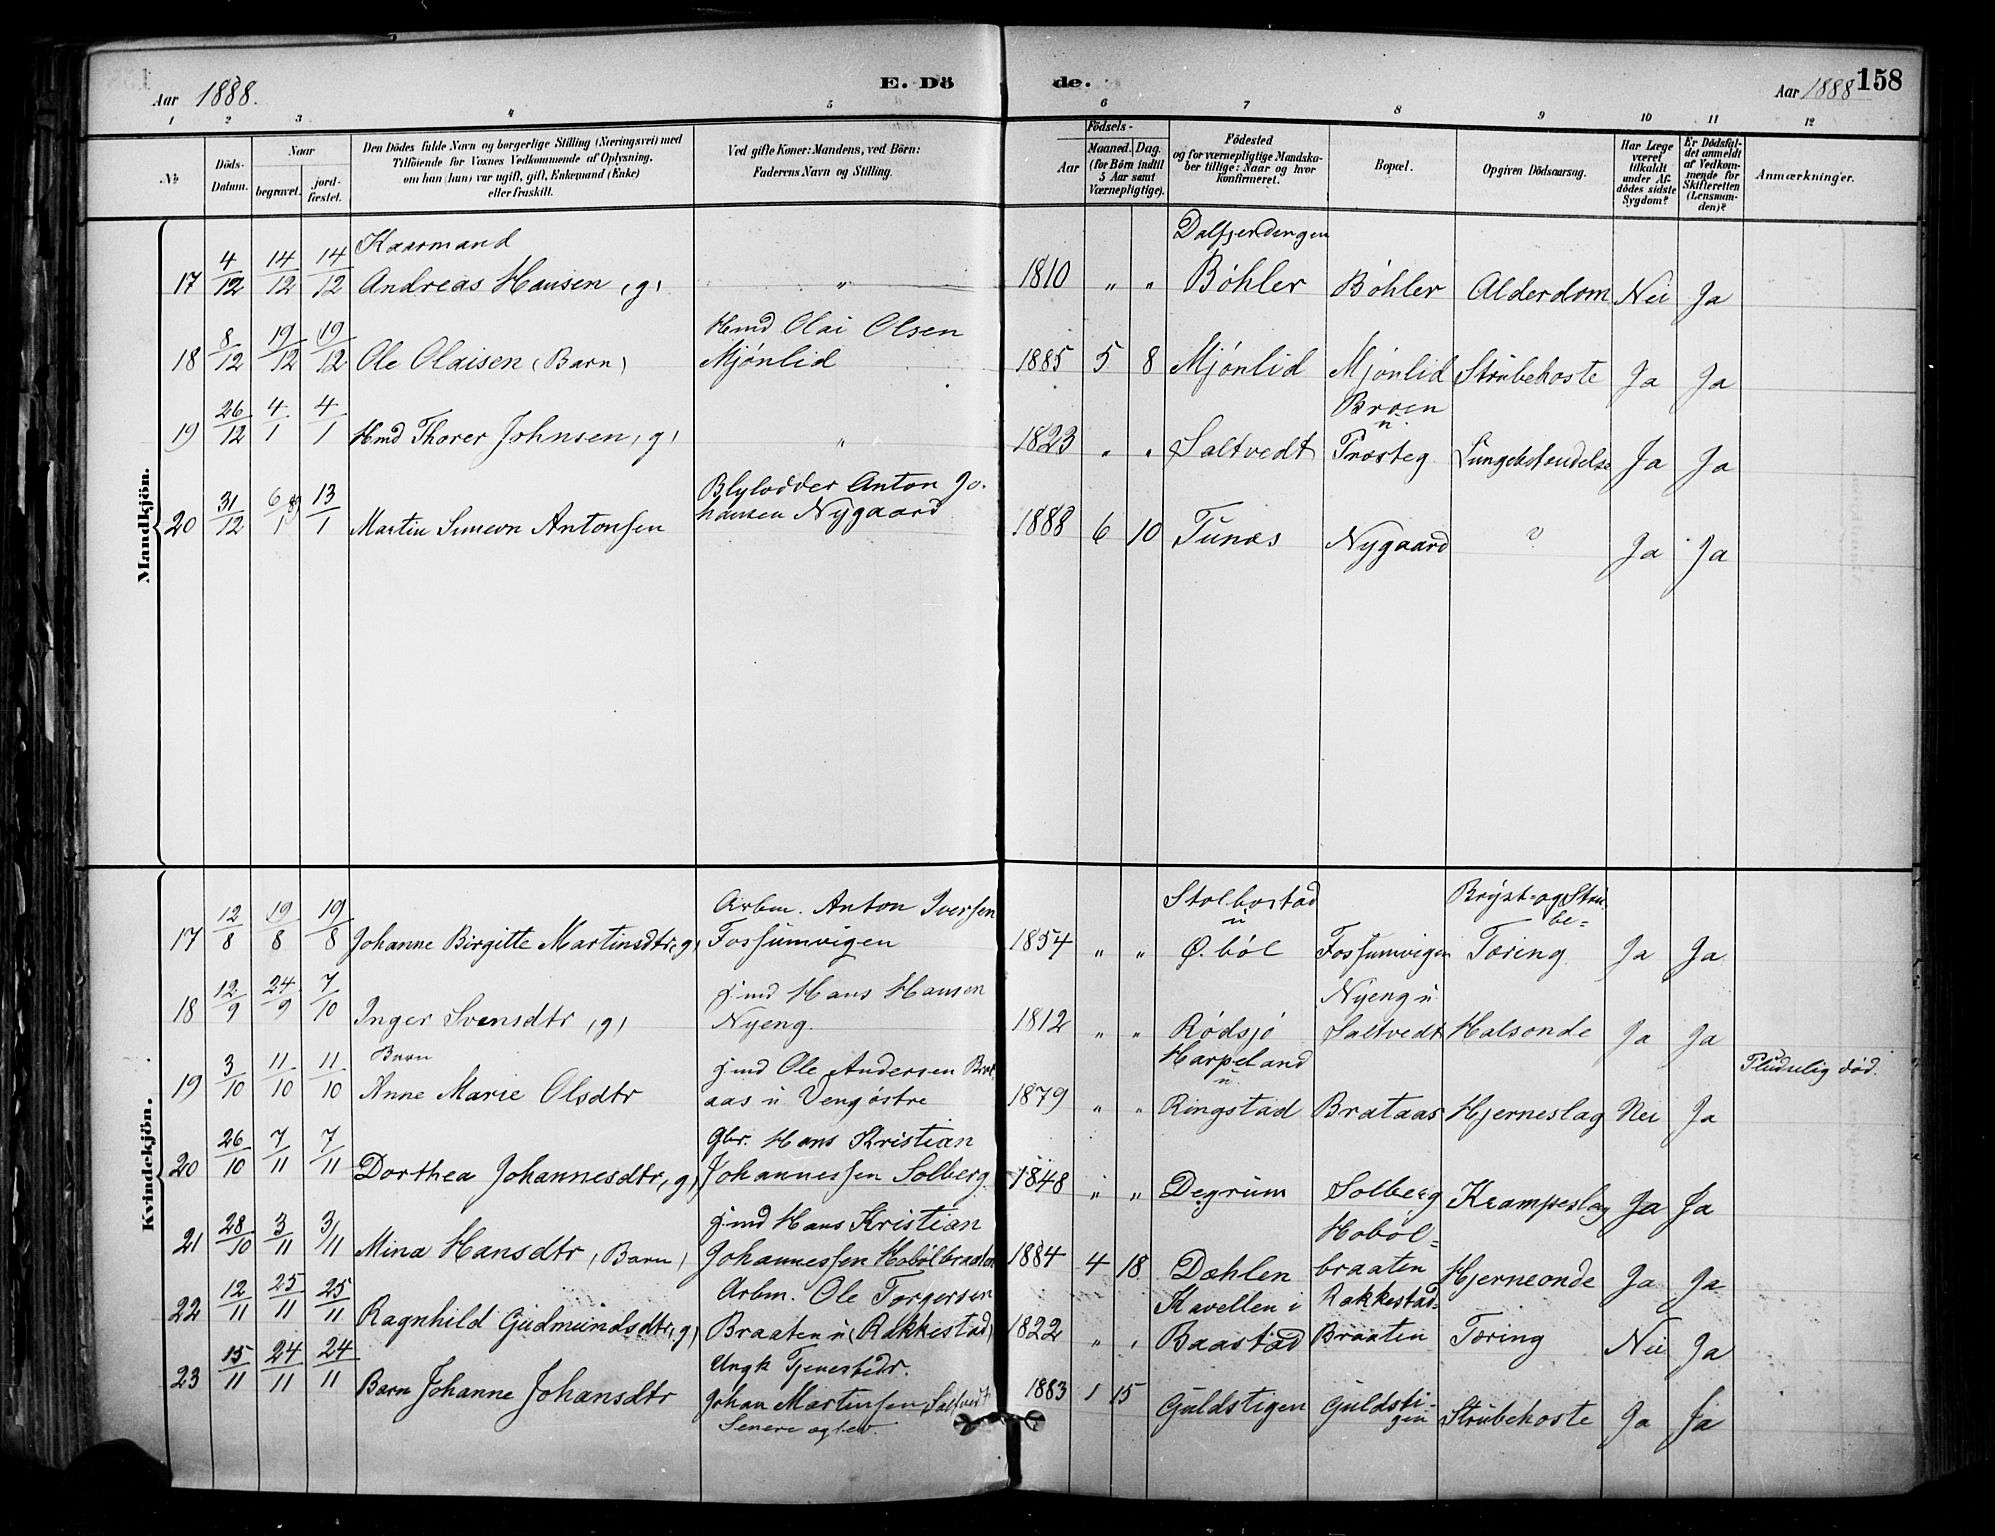 Aar 1888. E. Döde. Aar 1888 158
1 2 3 4 5 6 7 8 9 10 11 12
No
Döds-Datum.
Naar
begravet.
jord-fæstet.
Den Dödes fulde Navn og borgerlige Stilling (Næringsvei) med
Tilföiende for Voxnes Vedkommende af Oplysning,
om han (hun) var ugift, gift, Enkemand (Enke)
eller fraskilt.
Ved gifte Koner: Mandens, ved Börn:
Faderens Navn og Stilling.
Födsels-
Aar
Maaned. Dag.
(for Börn indtil
5 Aar samt
Værnepligtige).
Födested
og for værnepligtige Mandska-
ber tillige: Naar og hvor
Konfirmeret.
Bopæl.
Opgiven Dödsaarsag.
Har Læge
været
tilkaldt
under Af-
dödes sidste
Sygdom?
Er Dödsfal-
det anmeldt
af Vedkom-
mende for
Skifteretten
(Lensman-
den)?
Anmærkninger.
Mandkjön.
Kaarmand Dalfjerdingen
17 4/12 14/12 14/12 Andreas Hansen (g) " 1810 " " Bøhler Bøhler Alderdom Nei Ja
Hmd Olai Olsen
18 8/12 19/12 19/12 Ole Olaisen (Barn) Mjønlid 1885 5 8 Mjønlid Mjønlid Strubehoste Ja Ja
Braen u.
19 26/12 4/1 4/1 Hmd Thorer Johnsen (g) " 1823 " " Saltvedt Prosteg Lungebetændelse Ja Ja
Anton Jo-
20 31/12 6/1 89 13/1 Martin Simeon Antonsen hansen Nygaard 1888 6 10 Tunæs Nygaard ? Ja Ja
Kvindekjön.
Arbm. Anton Iversen Stolbostad u Bryst- og Stru-be-
17 12/8 19/8 19/8 Johanne Birgitte Martinsdtr (g) Fossumvigen 1854 " " Ø. bøl Fossumvigen Tæring Ja Ja
Hans Hansen Nyeng u
18 12/9 24/9 7/10 Inger Svensdtr (g) Nyeng. 1812 " " Rødsjø Saltvedt Halsonde Ja Ja
Barn Ole Andersen Brat- Harpeland u. Pludselig død.
19 3/10 11/10 11/10 Anne Marie Olsdtr aas u Vengøstre 1879 " " Ringstad Brataas Hjerneslag Nei Ja
Gbr. Hans Kristian
20 26/10 7/11 7/11 Dorthea Johannesdtr (g) Johannessen Solberg 1848 " " Degrum Solberg Krampeslag Ja Ja
Hans Kristian Hobøl-
21 28/10 3/11 3/11 Mina Hansdtr (Barn) Johannessen Hobølbraaten 1884 4 18 Dæhlen braaten Hjerneonde Ja Ja
Arbm. Ole Torgersen Kavellen i Rakkestad-
22 12/11 25/11 25/11 Ragnhild Gudmundsdtr (g) Braaten u (Rakkestad) 1822 " " Baastad Braaten Tæring Nei Ja
Ungk Tjenestedr.
23 15/11 24/11 24/11 Barn Johanne Johansdtr Johan Martinsen Saltvedt 1883 1 15 Guldstigen Guldsti-gen Strubehoste Ja Ja
Senere ægtev.